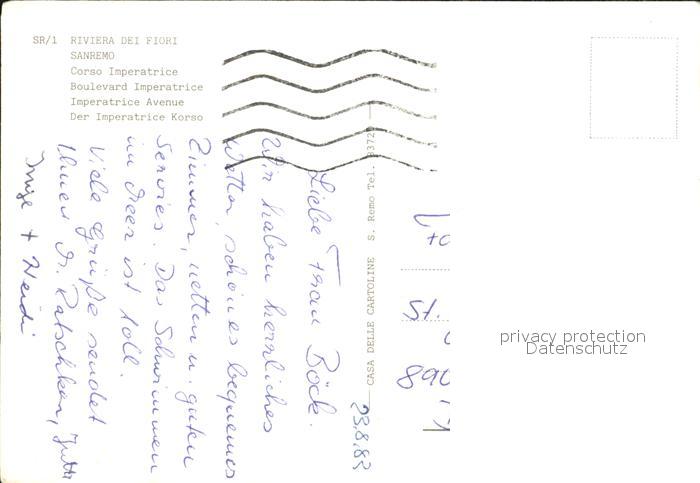 SR/1 RIVIERA DEI FIORI
SANREMO
Corso Imperatrice
Boulevard Imperatrice
Imperatrice Avenue
Der Imperatrice Korso
CASA DELLE CARTOLINE S. Remo Tel.
23.8.83
Liebe Frau Böck.
Wir haben herrliches
Wetter, schönes bequemes
Zimmer, netten u. guten
Servies. Das Schwimmen
im Meer ist toll.
Viele Grüße sendet
Ihnen
+ Heidi
St.
890
privacy protection
Datenschutz